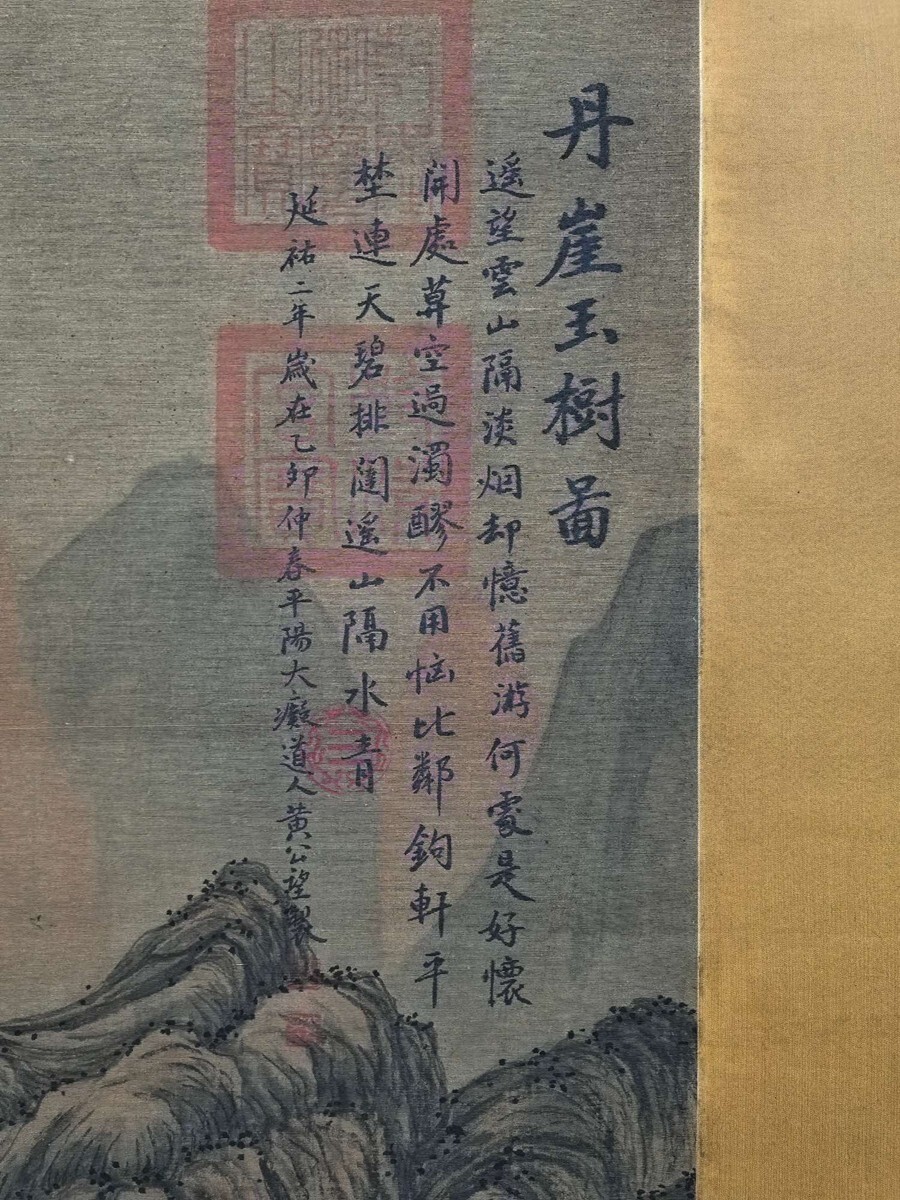 丹崖玉樹啚
遥望雲山隔淡烟却憶舊游何處是好懷
開處草空過濁醪不用惱比鄰鉤軒平
埜連天碧排闥遥山隔水青
延祐二年歲在乙卯仲春平陽大癡道人黃公望製